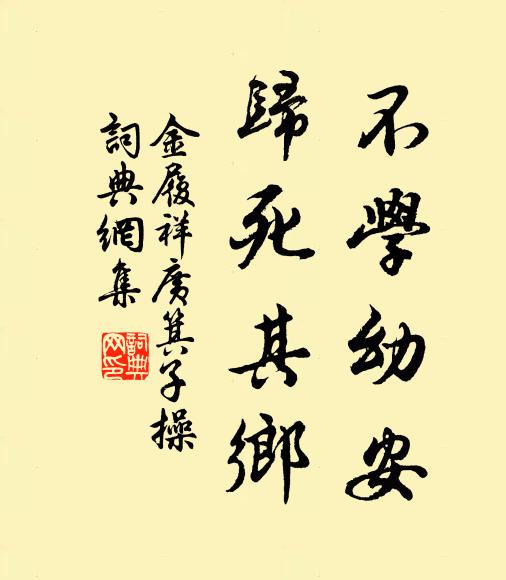 不學幼安
歸死其鄉
金履祥廣箕子操
詞典網集
詞典網印